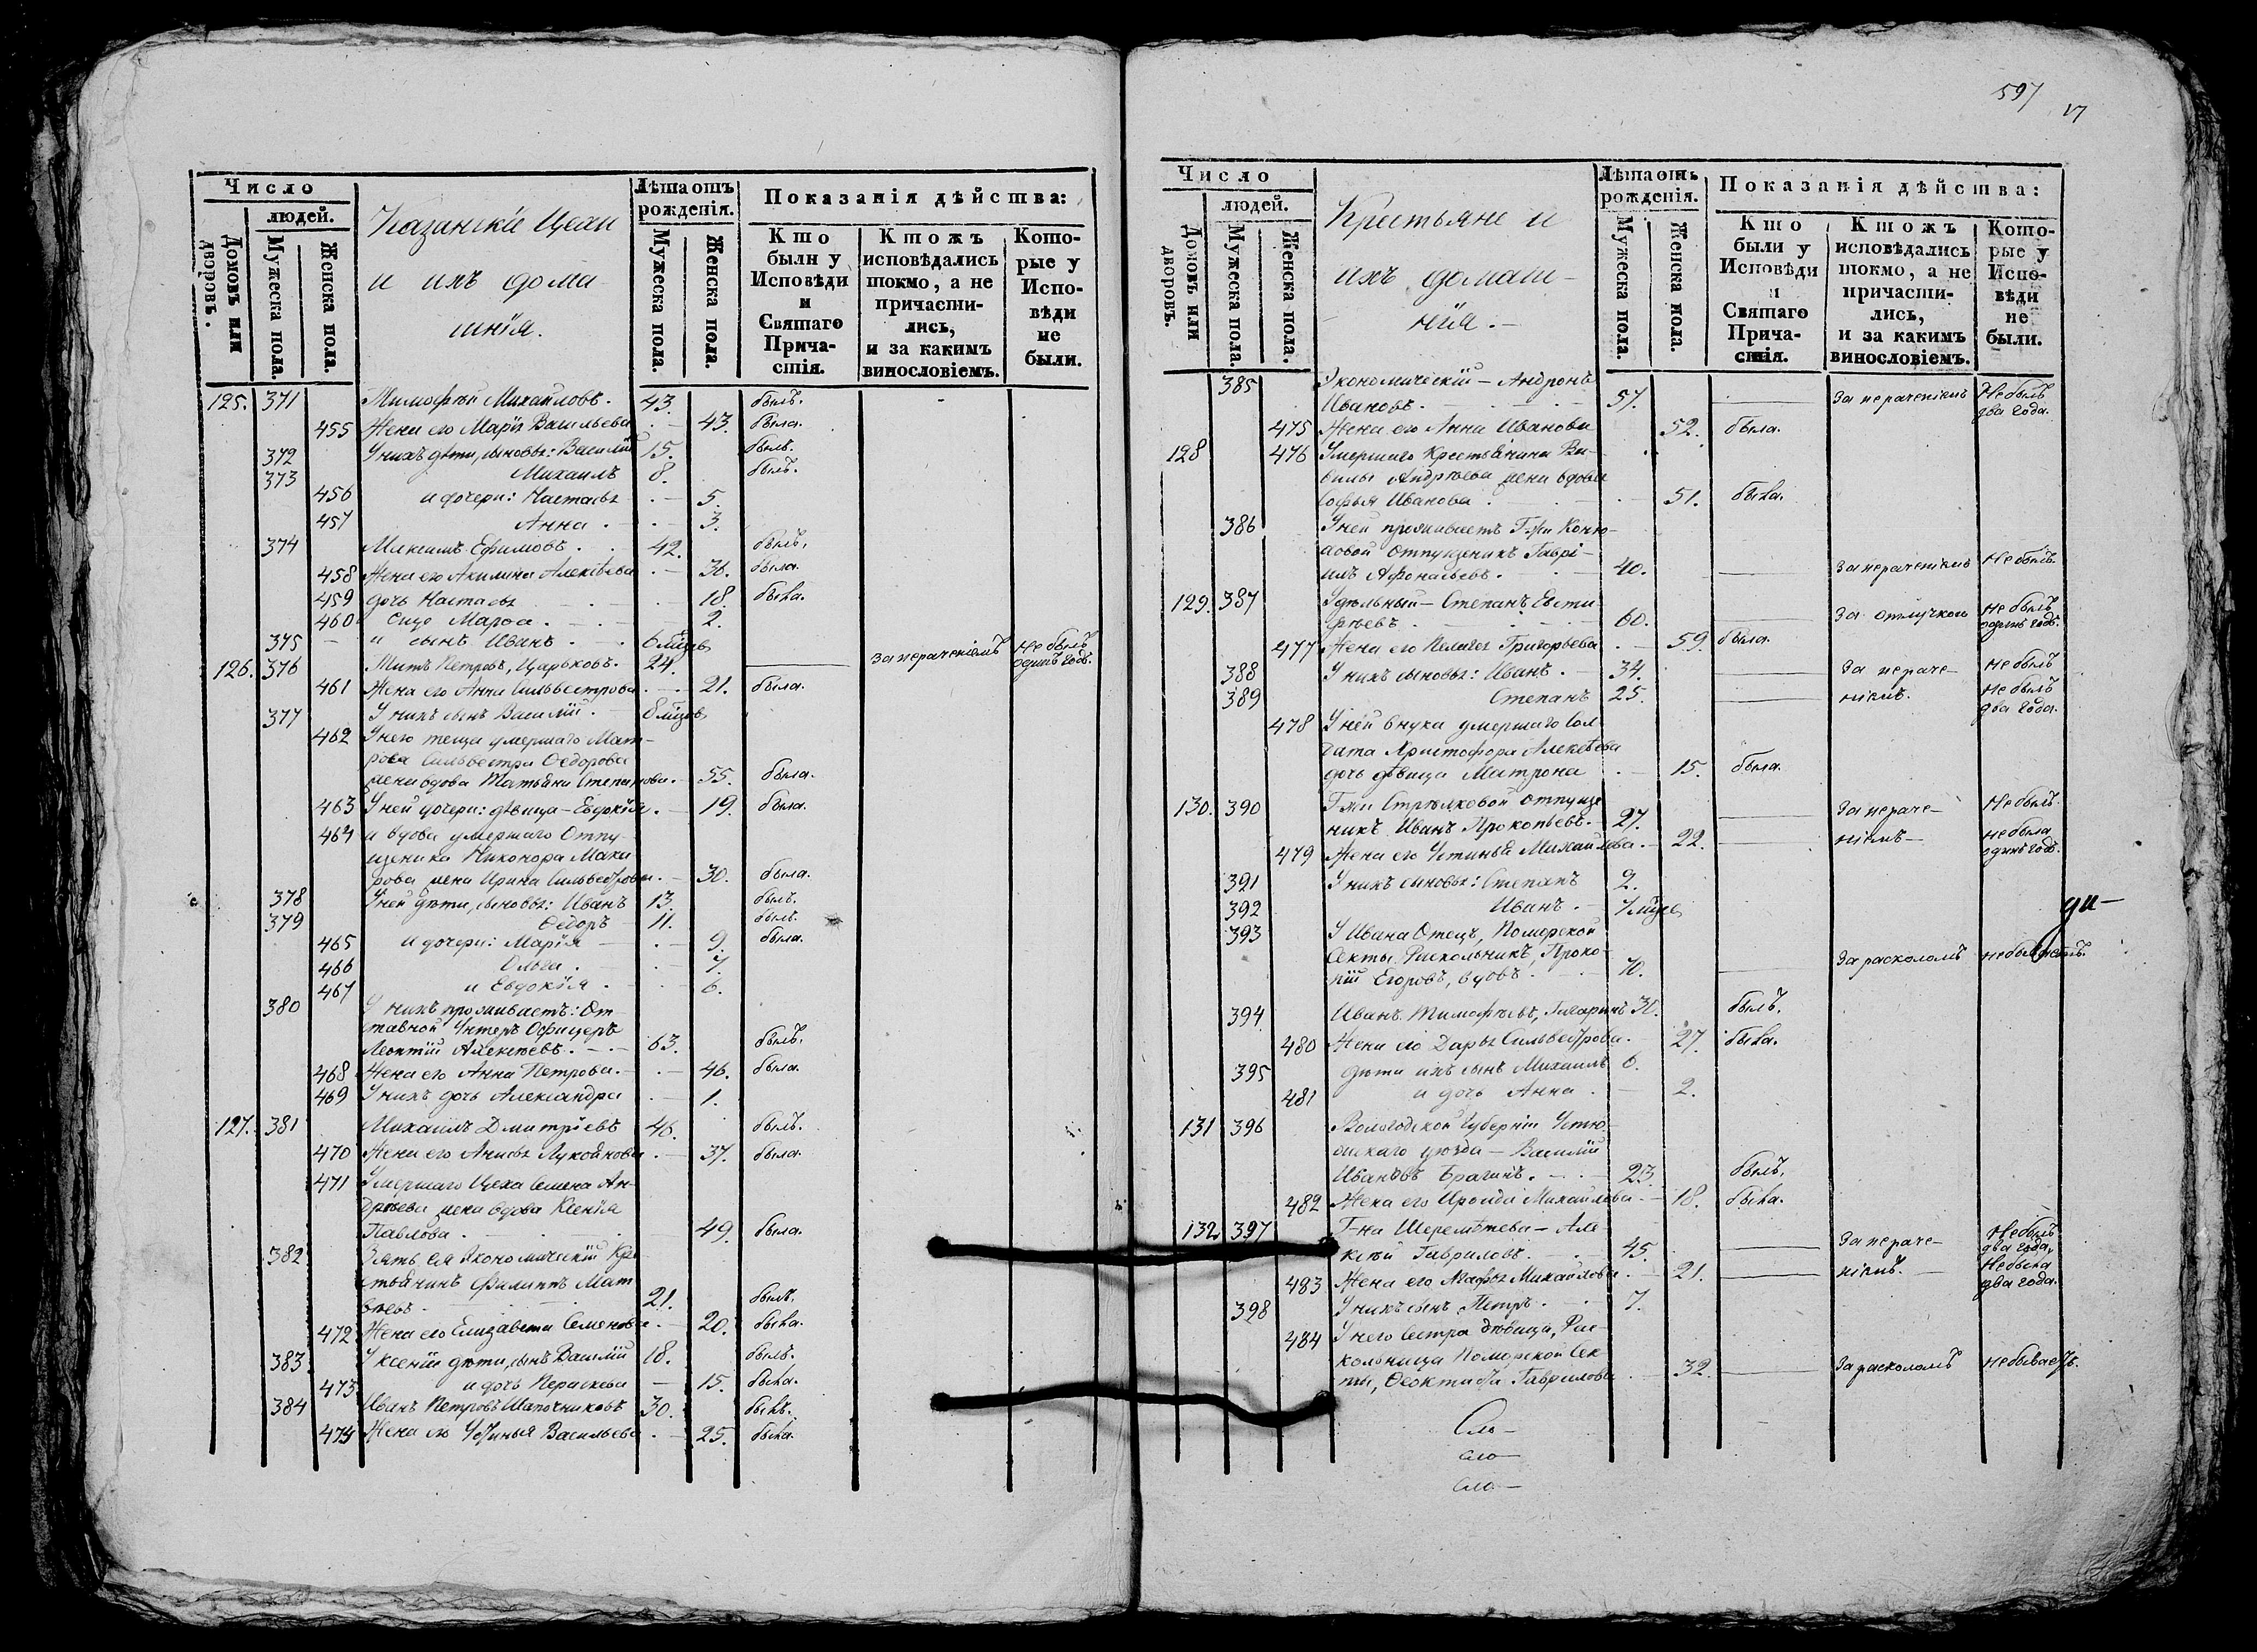 597
17
Число
людей.
Домовъ или дворовъ.
Мужеска пола.
Женска пола.
Казанскіе Цехи
и ихъ дома-
шнія.
Лѣта отъ рожденія.
Мужеска пола.
Женска пола.
Показанія дѣйства:
Кто были у Исповѣди и Святаго Прича-стія.
Ктожъ исповѣдались токмо, а не причасти-лись, и за какимъ винословіемъ.
Кото-рые у Испо-вѣди не были.
125. 371 Тимофѣй Михайловъ. 43. былъ.
455 Жена его Марья Васильева 43. была.
372 У нихъ дѣти, сыновья: Василій 15. былъ.
373 Михаилъ 8. былъ.
456 и дочери: Настасья 5.
457 Анна 3.
374 Максимъ Ефимовъ. 42. былъ.
458 Жена его Акилина Алексѣева 36. была.
459 дочь Настасья 18. была.
460 Еще Марѳа. 2.
375 и сынъ Иванъ. 6 мѣцъ
126. 376 Титъ Петровъ, Царьковъ. 24. За нераченіемъ Не былъ одинъ годъ.
461 Жена его Анна Сильвестрова 21. была.
377 У нихъ сынъ Василій. 8 мѣцов
462 У него теща умершаго Мат-
роса Сильвестра Ѳедорова
жена вдова Татьяна Степанова. 55. была.
463 У ней дочери: дѣвица - Евдокія. 19. была.
464 и вдова умершаго Отпу-
щеника Никонора Мака
рова жена Ирина Сильвестрова. 30. была.
378 У ней дѣти, сыновья: Иванъ 13. былъ.
379 Ѳедоръ 11. былъ.
465 и дочери: Марія 9. была.
466 Ольга. 7.
467 и Евдокія 6.
380 У нихъ проживаетъ: От-
ставной Унтеръ Офицеръ
Леонтій Алексѣевъ. 63. былъ.
468 Жена его Анна Петрова. 46. была.
469 У нихъ дочь Александра 1.
127. 381 Михаилъ Дмитріевъ 46. былъ.
470 Жена его Анисья Лукоянова 37. была.
471 Умершаго Цеха Семена Ан-
дрѣева жена вдова Ксенія
Павлова. 49. была.
382 Зять ея Экономическій Кре-
стьянинъ Филиппъ Мат
вѣевъ. 21. былъ.
472 Жена его Елизавета Семенова 20. была.
383 У Ксеніи дѣти, сынъ Василій 18. былъ.
473 и дочь Параскева 15. была.
384 Иванъ Петровъ Шапочниковъ 30. былъ.
474 Жена его Устинья Васильева 25. была.
Число
людей.
Домовъ или дворовъ.
Мужеска пола.
Женска пола.
Крестьяне и
ихъ домаш-
нія.
Лѣта отъ рожденія.
Мужеска пола.
Женска пола.
Показанія дѣйства:
Кто были у Исповѣди и Святаго Прича-стія.
Ктожъ исповѣдались токмо, а не причасти-лись, и за какимъ винословіемъ.
Кото-рые у Испо-вѣди не были.
385 Экономическій - Андронъ
Ивановъ. 57. За нераченіемъ Не былъ два года.
475 Жена его Анна Иванова 52. была.
128 476 Умершаго Крестьянина Ва-
вилы Андрѣева жена вдова
Софья Иванова 51. была.
386 У ней проживаетъ Г-жи
отпущеникъ Гаврі-
илъ Афонасьевъ. 40. За нераченіемъ Не былъ.
129. 387 Удѣльный - Степанъ Евсти
фѣевъ. 60. За отлучкою Не былъ одинъ годъ.
477 Жена его Пелагея Григорьева 59. была.
388 У нихъ сыновья: Иванъ. 34. За нераче- Не былъ
389 Степанъ 25. ніемъ. Не былъ два года.
478 У ней внука умершаго Сол-
дата Христофора Алексѣева
дочь дѣвица Матрона 15. была.
130. 390 Г-жи Стрѣлковой отпуще
никъ Иванъ Прокопьевъ. 27. За нераче- Не былъ.
479 Жена его Устинья Михайлова. 22. ніемъ - не была одинъ годъ.
391 У нихъ сыновья: Степанъ 2.
392 Иванъ. 7 мѣцев
393 У Ивана Отецъ, Поморской
Секты Раскольникъ, Проко-
пій Егоровъ, вдовъ. 70. За расколомъ не бываетъ.
394 Иванъ Тимофѣевъ, 30. былъ.
480 Жена его Дарья Сильвестрова. 27. была.
395 Дѣти ихъ сынъ Михаилъ 6.
481 и дочь Анна 2.
131 396 Вологодской Губерніи Устю-
жскаго уѣзда - Василій
Ивановъ Брагинъ. 23. былъ.
482 Жена его Ироида Михайлова 18. была.
132. 397 Г-на Шереметева - Але
ксѣй Гавриловъ. 45. За нераче- Не былъ два года.
483 Жена его Агафья Михайлова 21. ніемъ. Не была два года.
398 У нихъ сынъ Петръ. 7.
484 У него Сестра дѣвица, Рас-
кольница Поморской Сек-
ты, Ѳеоктиста Гаврилова 32. За расколомъ не бываетъ.
ди-